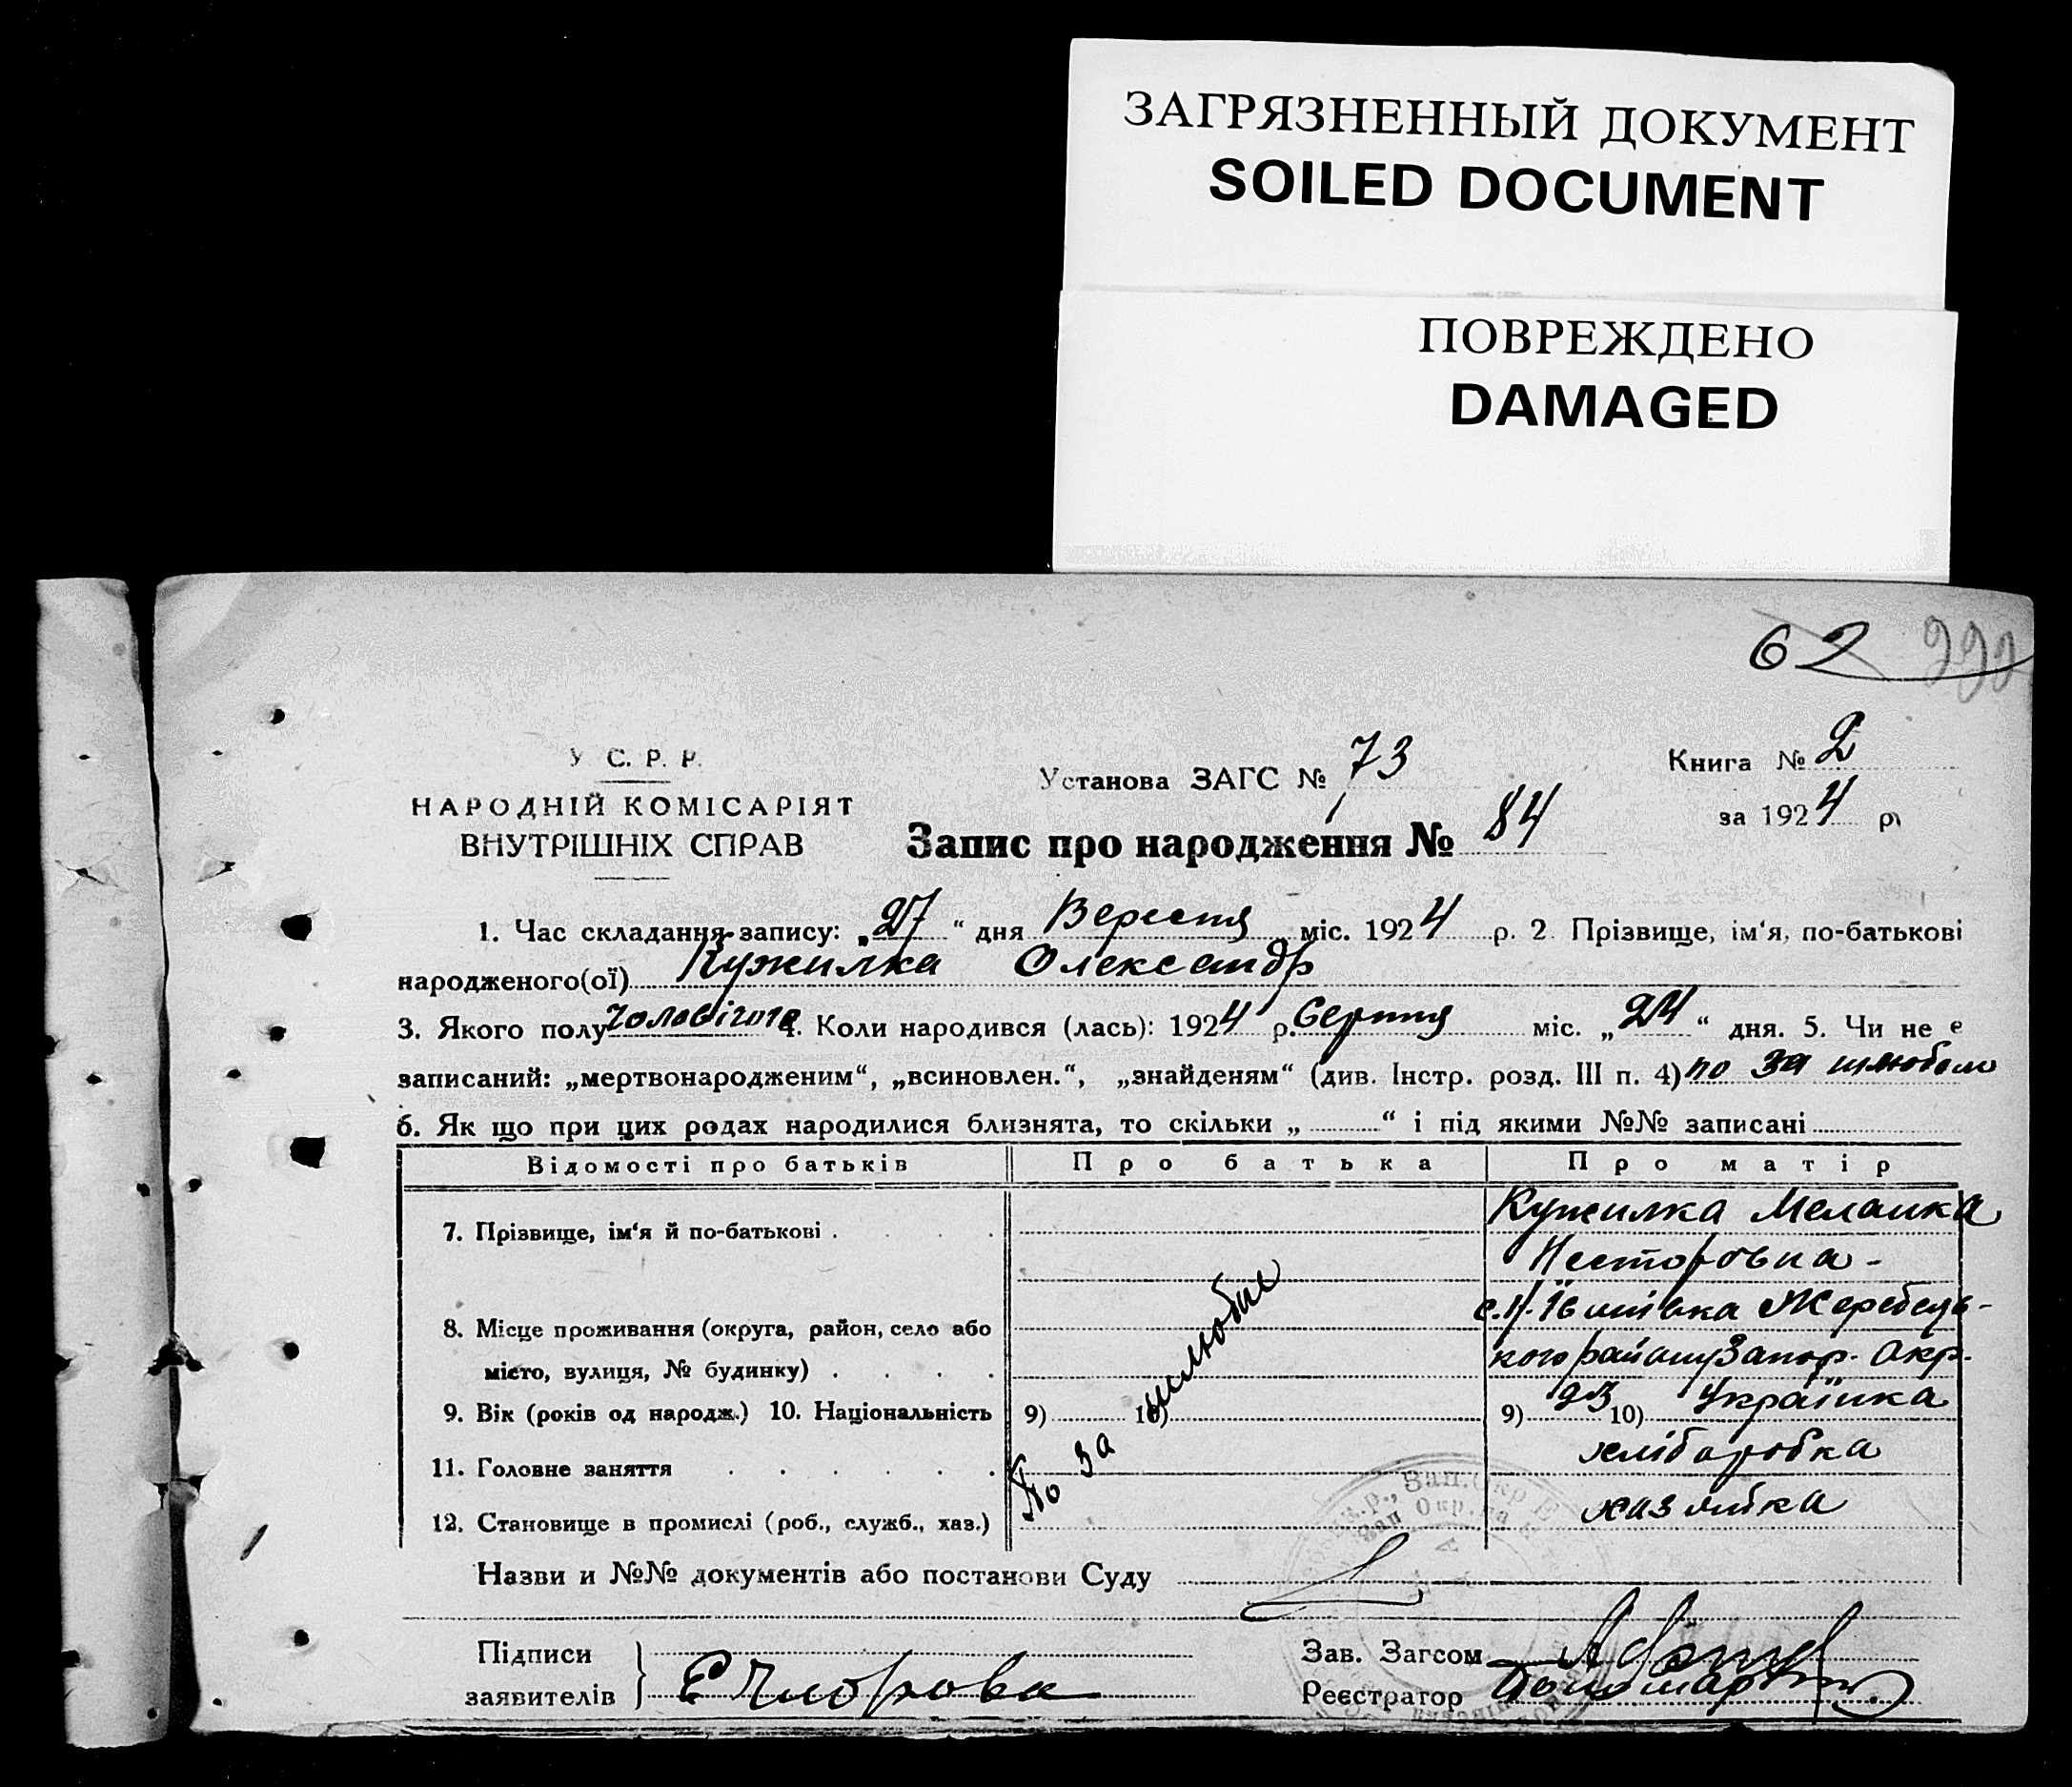 ЗАГРЯЗНЕННЫЙ ДОКУМЕНТ
SOILED DOCUMENT
ПОВРЕЖДЕНО
DAMAGED
62
У С. Р. Р.
НАРОДНІЙ КОМІСАРІЯТ
ВНУТРІШНІХ СПРАВ
Установа ЗАГС № 73
Книга № 2
за 1924 р
Запис про народження № 84
1. Час складання запису: „27“ дня Вересня міс. 1924 р. 2 Прізвище, ім‘я, по-батькові
народженого(ої) Кужилка Олександр
3. Якого полу чоловічого 4. Коли народився (лась): 1924 р. Серпня міс. „24“ дня. 5. Чи не є
записаний: „мертвонародженим“, „всиновлен.“, „знайденям“ (див. Інстр. розд. III п. 4) по за шлюбом
6. Як що при цих родах народилися близнята, то скільки „ “ і під якими №№ записані
Відомості про батьків Про батька Про матір
7. Прізвище, ім‘я й по-батькові Кужилка Меланка
Несторовна -
8. Місце проживання (округа, район, село або
місто, вулиця, № будинку) кого району Запор. Окр.
9. Вік (років од народж.) 10. Національність 9) 10) 9) 23 10) Українка
По за шлюбне
11. Головне заняття хліборобка
12. Становище в промислі (роб., служб., хаз.) хазяйка
Назви и №№ документів або постанови Суду
Підписи
заявителів
Зав. Загсом
Реєстратор